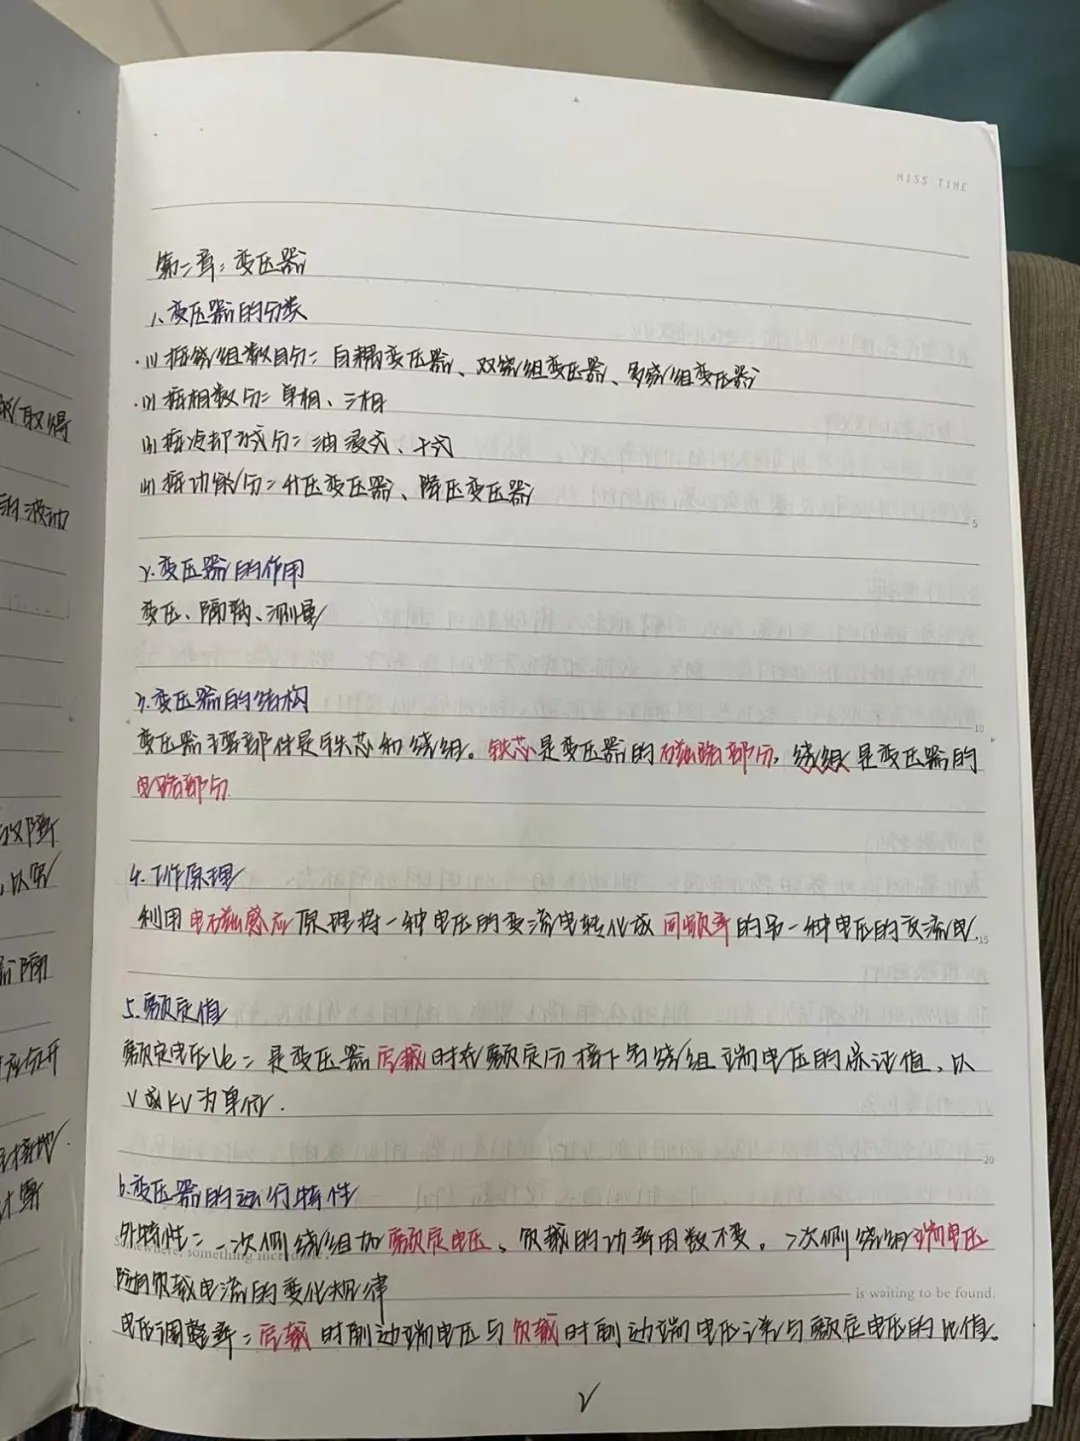 MISS TIME
第二章：变压器
1、变压器的分类
(1)按绕组数目分：自耦变压器、双绕组变压器、多绕组变压器
(2)按相数分：单相、三相
(3)按冷却方式分：油浸式、干式
(4)按功能分：升压变压器、降压变压器
5
2.变压器的作用
变压、隔离、测量
3.变压器的结构
10
变压器主要部件是铁芯和绕组。铁芯是变压器的磁路部分，绕组是变压器的
电路部分
4.工作原理
利用电磁感应原理将一种电压的交流电转化成同频率的另一种电压的交流电.
15
5.额定值
额定电压Ue：是变压器空载时在额定分接下各绕组端电压的保证值，以
V或KV为单位.
20
6.变压器的运行特性
外特性：一次侧绕组加额定电压、负载的功率因数不变，二次侧绕组端电压
something
随负载电流的变化规律
is waiting to be found.
电压调整率：空载时副边端电压与负载时副边端电压之差与额定电压的比值。
取得
的波动
故障
，以免
隔
分开
接地